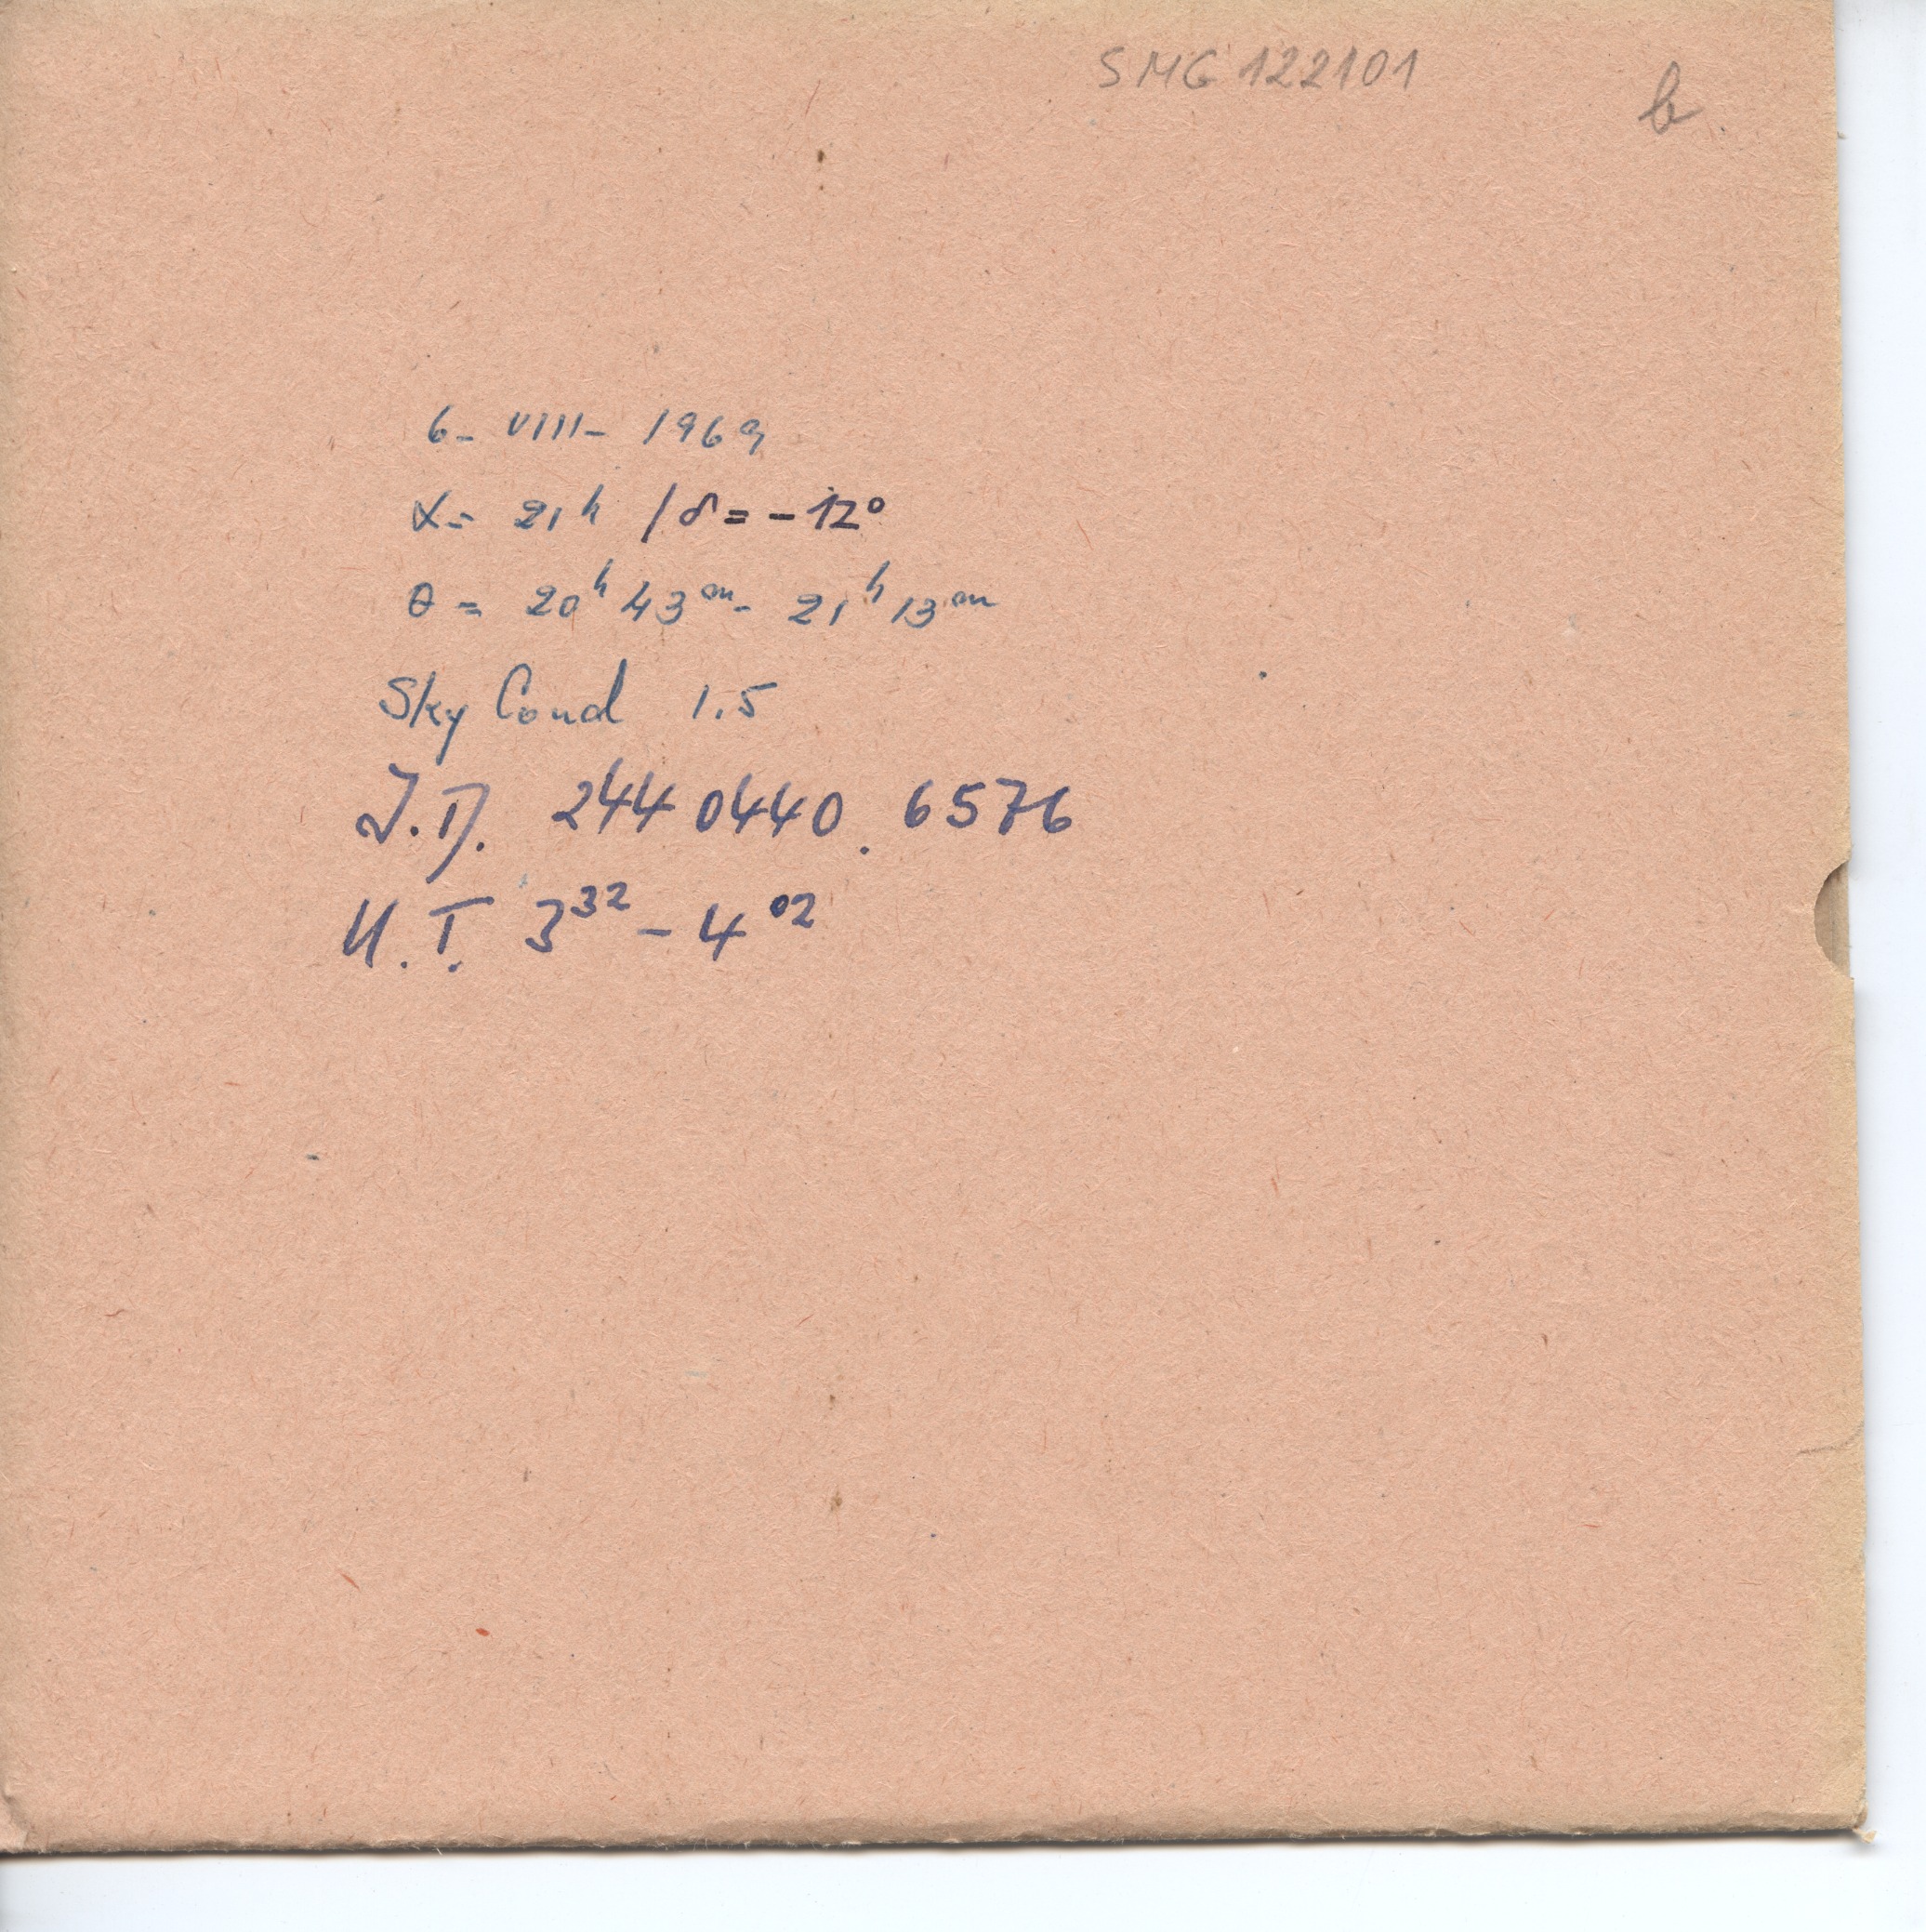 SMG 122101
b
6- VIII- 1969
α= 21h / δ = -12°
θ = 20h 43m - 21h 13m
Sky Cond 1.5
J.D. 2440440.6576
U.T. 3 32 - 4 02